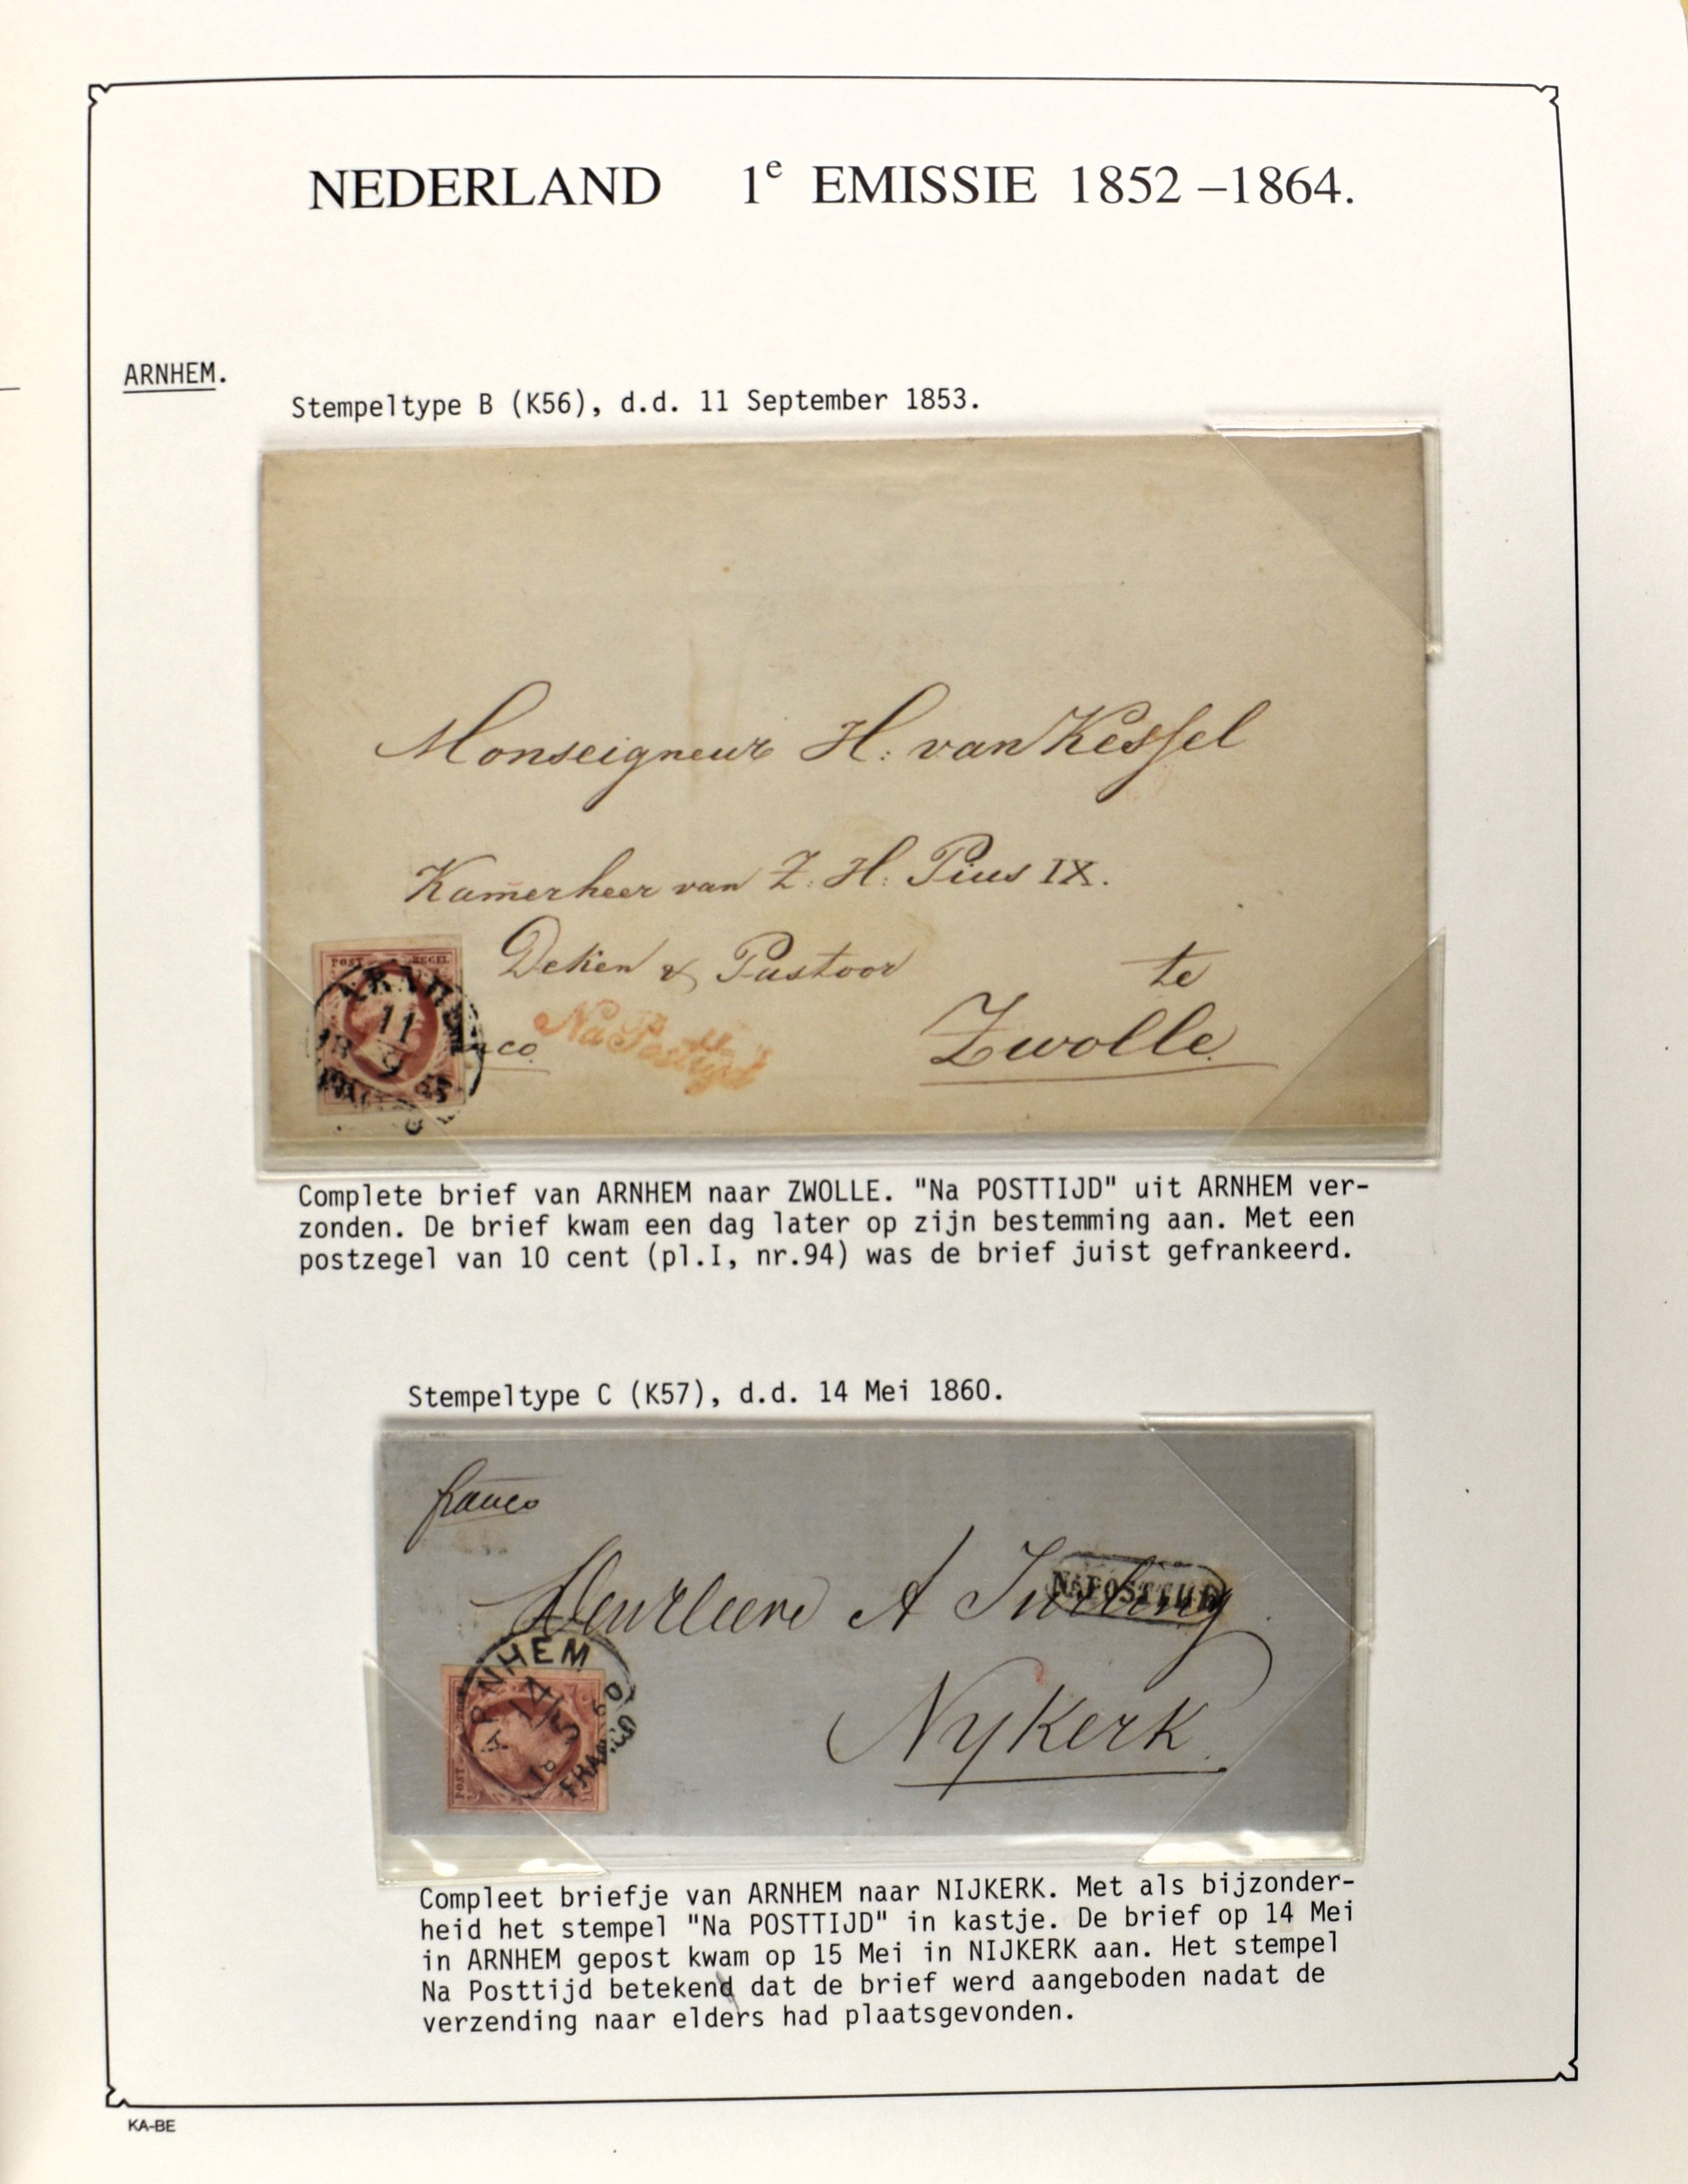 NEDERLAND 1e EMISSIE 1852 –1864.
ARNHEM.
Stempeltype B (K56), d.d. 11 September 1853.
Monseigneur H. van Kessel
Kamerheer van Z. H. Pius IX.
Deken & Pastoor
te
Zwolle
Na Posttijd
POST ZEGEL
11
9
Complete brief van ARNHEM naar ZWOLLE. "Na POSTTIJD" uit ARNHEM ver-
zonden. De brief kwam een dag later op zijn bestemming aan. Met een
postzegel van 10 cent (pl.I, nr.94) was de brief juist gefrankeerd.
Stempeltype C (K57), d.d. 14 Mei 1860.
franco
A
NA POSTTIJD
Nykerk
ARNHEM
14
5
18 60
FRANCO
POST
Compleet briefje van ARNHEM naar NIJKERK. Met als bijzonder-
heid het stempel "Na POSTTIJD" in kastje. De brief op 14 Mei
in ARNHEM gepost kwam op 15 Mei in NIJKERK aan. Het stempel
Na Posttijd betekend dat de brief werd aangeboden nadat de
verzending naar elders had plaatsgevonden.
KA-BE